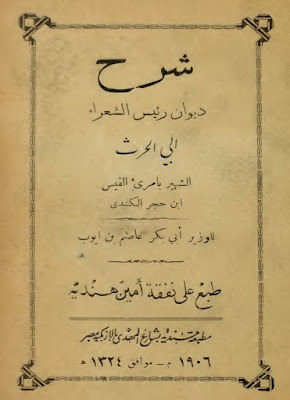 شرح
ديوان رئيس الشعراء
ابي الحرث
الشهير بامرئ القيس
ابن حجر الكندي
للوزير أبي بكر عاصم بن ايوب
طبع على نفقة أمين هنديه
مطبعة هندية بشارع المهدي بالازبكية بمصر
١٩٠٦ م - موافق ١٣٢٤ ه